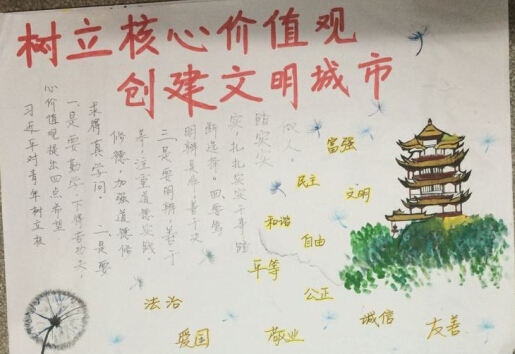 树立核心价值观
创建文明城市
习近平对青年树立核
心价值观提出四点希望
一是要勤学、下得苦功夫、
求得真学问。二是要
修德，加强道德修
养，注重道德实践。
三是要明辨，善于
明辨是非，善于决
断选择。四要笃
实，扎扎实实干事踏
踏实实
做人。
富强
民主
文明
和谐
自由
平等
公正
法治
爱国
敬业
诚信
友善